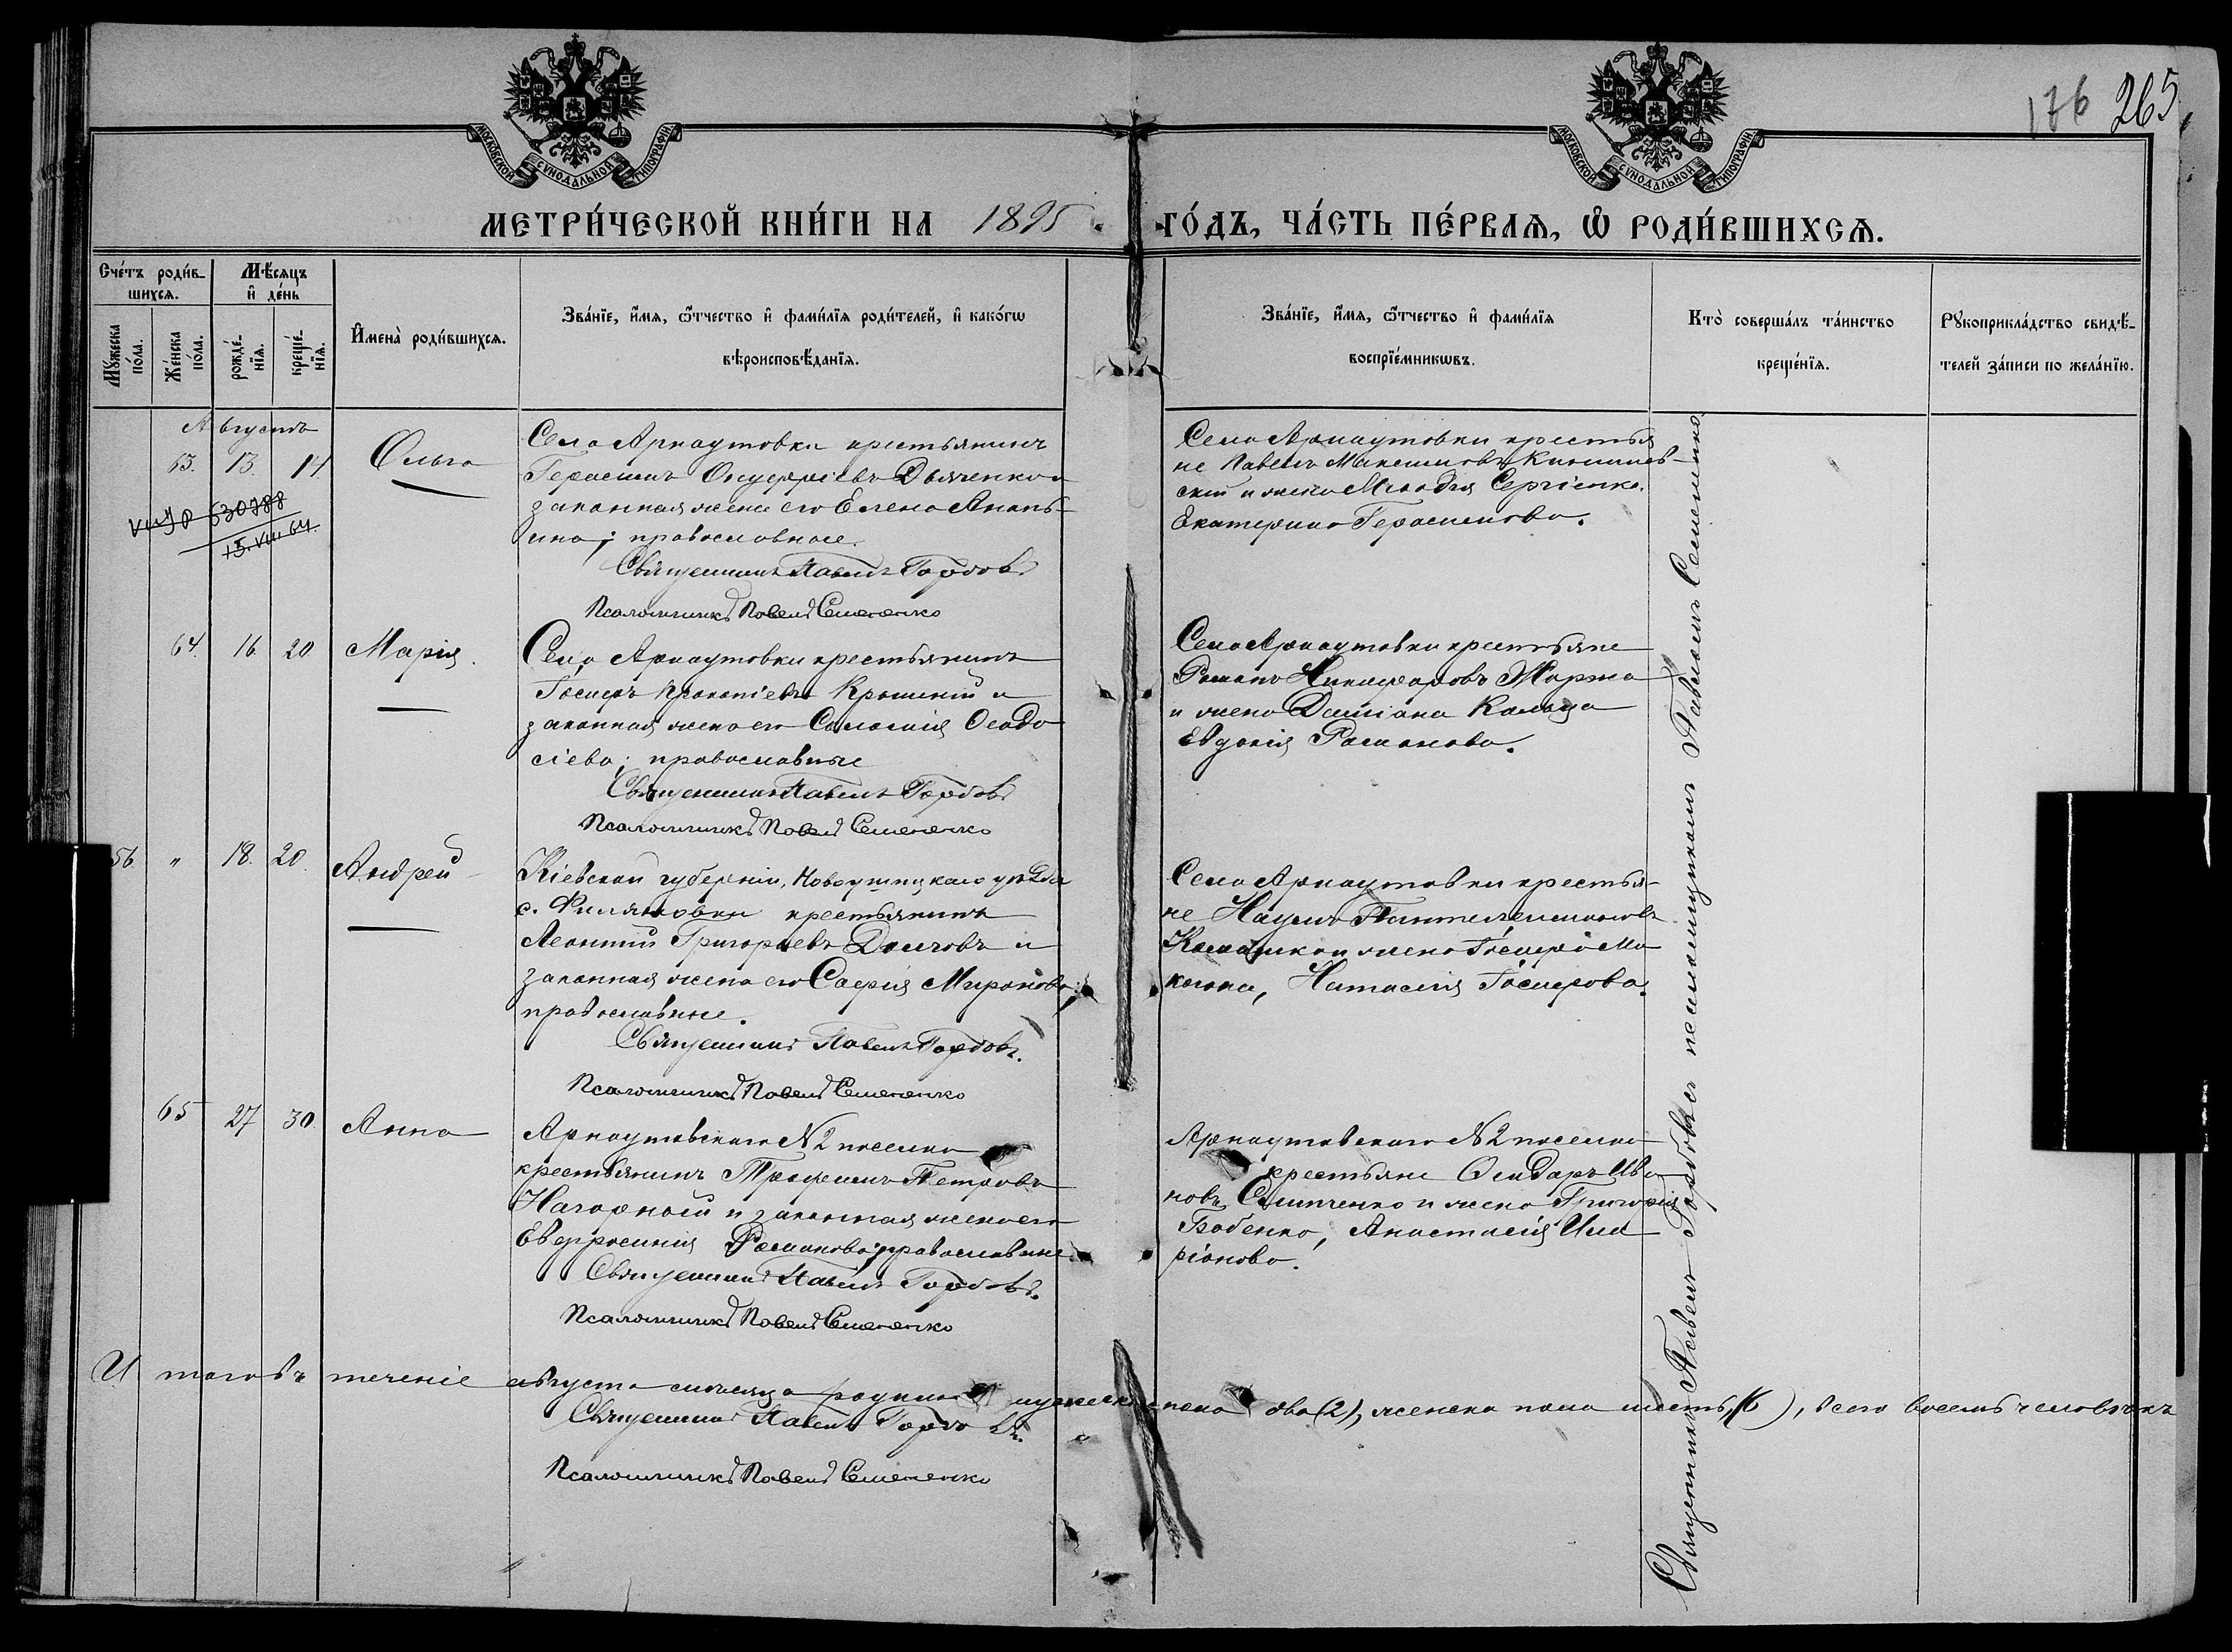 176 265
МОСКОВСКОЙ СѴНОДАЛЬНОЙ ТИПОГРАФІИ
МОСКОВСКОЙ СѴНОДАЛЬНОЙ ТИПОГРАФІИ
МЕТРИ́ЧЕСКОЙ КНИ́ГИ НА 1895 ГО́ДЪ, ЧА́СТЬ ПЕ́РВАѦ, Ѡ РОДИ́ВШИХСѦ.
Сче́тъ роди́в-
шихсѧ.
Мѣ́сѧцъ
и де́нь
Мꙋ́жеска
по́ла.
Же́нска
по́ла.
рожде́-
нїѧ.
креще́-
нїѧ.
Имена̀ роди́вшихсѧ.
Зва́нїе, и́мѧ, ѻ҆́тчество и фами́лїѧ роди́телей, и како́гѡ
вѣроисповѣ́данїѧ.
Зва́нїе, и́мѧ, ѻ҆́тчество и фами́лїѧ
воспрїе́мникѡвъ.
Кто̀ соверша́лъ та́инство
креще́нїѧ.
Рꙋкоприкла́дство свидѣ́-
телей за́писи по жела́нїю.
Августъ
63. 13. 14 Ольга
630788
15.VIII 64
Село Арнаутовки крестьянинъ
Герасимъ Онуфріевъ Дьяченко и
законная жена его Елена Анань-
ина; православные.
Священникъ Павелъ Горбовъ
Псаломщикъ Павелъ Семененко
Село Арнаутовки крестья
не Павелъ Максимовъ
скій и жена Сергіенко,
Екатерина Герасимова.
64. 16 20 Марія.
Село Арнаутовки крестьянинъ
Госифъ Прокопіевъ и
законная жена его Саломія Ѳеодо
сіева; православные
Священникъ Павелъ Горбовъ
Псаломщикъ Павелъ Семененко
Село Арнаутовки крестьяне
Романъ Никифоровъ Жаржа
и жена Даміана
Евдокія Романова.
56. " 18. 20. Андрей
Кіевской губерніи, Новоушицкаго уѣзда
с. крестьянинъ
Леонтій Григорьевъ и
законная жена его Софія Миронова;
православные.
Священникъ Павелъ Горбовъ.
Псаломщикъ Павелъ Семененко
Село Арнаутовки крестья-
не Наумъ Пантелеимоновъ
и жена
Наталія Госифова.
65 27 30. Анна
Арнаутовскаго №2 поселка
крестьянинъ Трофимъ Петровъ
Нагорный и законная жена его
Евфросинія Романова; православные.
Священникъ Павелъ Горбовъ.
Псаломщикъ Павелъ Семененко
Арнаутовскаго №2 поселка
крестьяне Ѳеодоръ Ива
новъ и жена Григорія
Бабенко, Анастасія Ила
ріонова.
Священникъ Павелъ Горбовъ съ псаломщикомъ Павломъ Семененко
И того въ теченіе августа мѣсяца родилось мужеска пола два (2), женска пола шесть (6), всего восемь человѣкъ
Священникъ Павелъ Горбовъ.
Псаломщикъ Павелъ Семененко